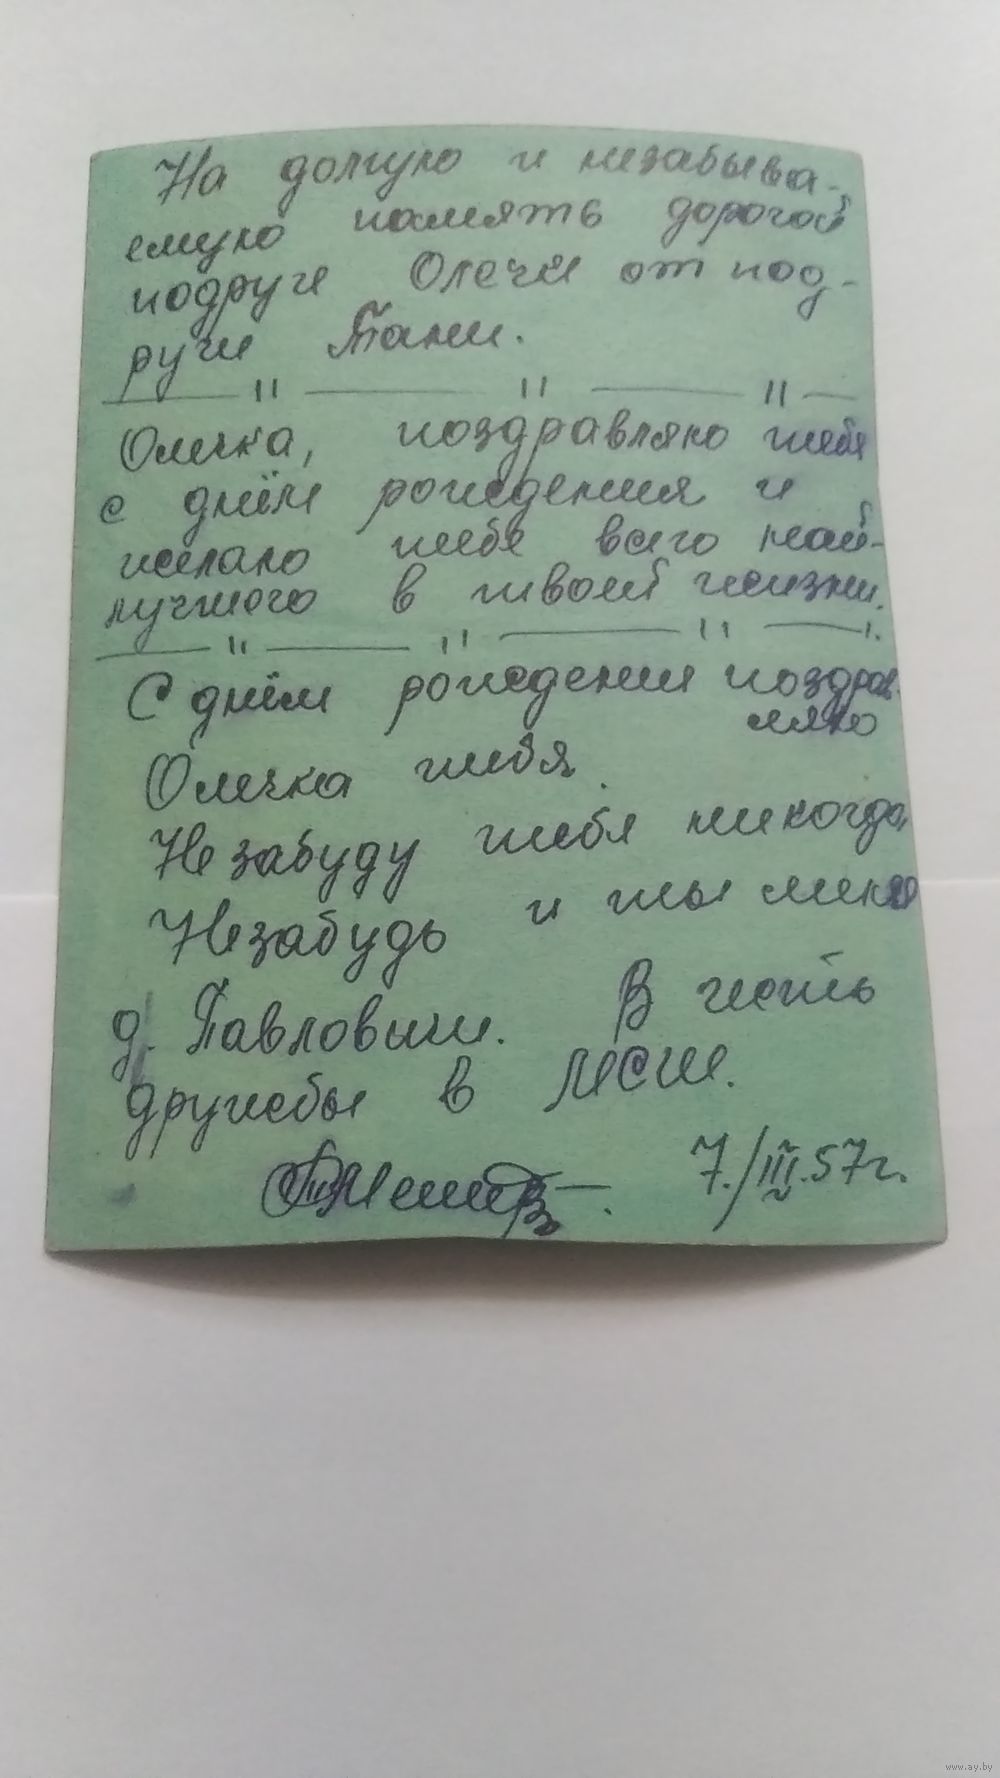 На долгую и незабыва-
емую память дорогой
подруге Олечки от под-
руги Тани.
— " — " — " —
Олечка, поздравляю тебя
с днём рождения и
желаю тебе всего най-
лучшого в твоей жизни.
— " — " — " —
С днём рождения поздрав-
ляю
Олечка тебя.
Незабуду тебя никогда,
Незабудь и ты меня
д. Павловичи. В честь
дружбы в
7./III.57г.
www.ay.by